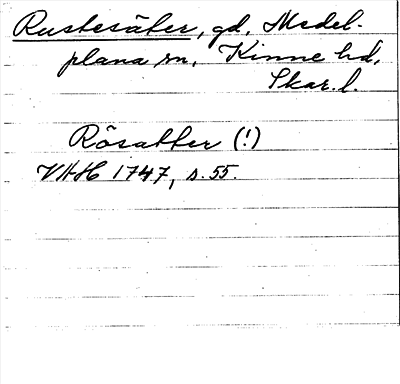 Rustesäter, gd, Medel-
plana sn, Kinne hd,
Skar. l.
Rösatter (!)
VAH 1747, s. 55.